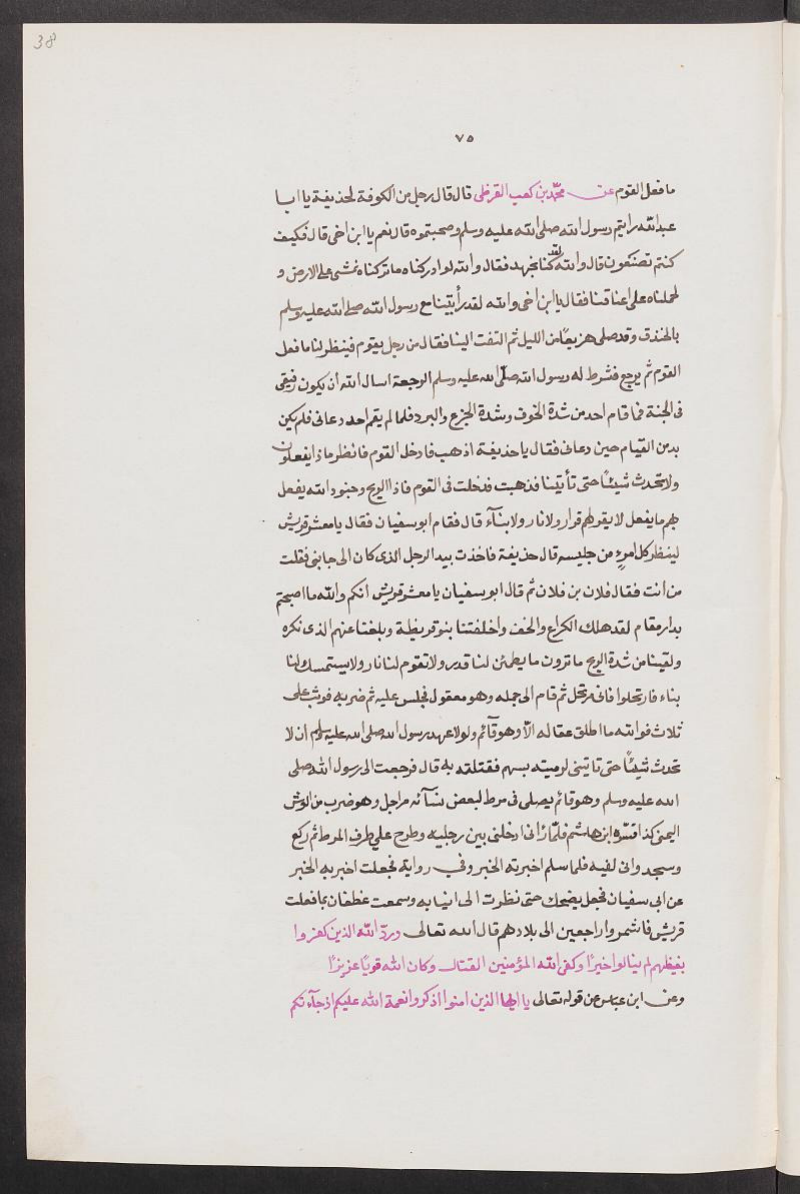 38
٧٥
ما فعل القوم عن محمّد بن كعب القرظى قال قال رجل من الكوفة لحذيفة يا ابا
عبد الله رايتم رسول الله صلى الله عليه وسلم وصحبتموه قال نعم يا ابن اخى قال فكيف
كنتم تصنعون قال والله لقد كنا نجهد فقال والله لو ادركناه ما تركناه نمشى على الارض و
لحملناه على اعناقنا فقال يا ابن اخى والله لقد رأيتنا مع رسول الله صلى الله عليه وسلم
بالخندق وقد صلى هزيعًا من الليل ثم التفت الينا فقال من رجل يقوم فينظر لنا ما فعل
القوم ثم يرجع فشرط له رسول الله صلّى الله عليه وسلم الرجعة اسال الله أن يكون رفيقى
فى الجنة فما قام احد من شدة الخوف وشدة الجزع والبرد فلما لم يقم احد دعانى فلم يكن
بد من القيام حين دعانى فقال يا حذيفة اذهب فادخل القوم فانظر ماذا يفعلون
ولا تحدث شيئًا حتى تأتينا فذهبت فدخلت فى القوم فاذا الريح وجنود الله يفعل
بهم ما يفعل لا يقر لهم قرار ولا نار ولا بنآء قال فقام ابو سفيان فقال يا معشر قريش
لينظر كل امرءٍ من جليسه قال حذيفة فاخذت بيد الرجل الذى كان الى جانبى فقلت
من انت فقال فلان بن فلان ثم قال ابو سفيان يا معشر قريش انكم والله ما اصبحتم
بدار مقام لقد هلك الكراع والخف واخلفتنا بنو قريظة وبلغنا عنهم الذى نكره
ولقينا من شدة الريح ما ترون ما يطمئن لنا قدر ولا تقوم لنا نار ولا يستمسك لنا
بناء فارتحلوا فانى مرتحل ثم قام الى جمله وهو معقول فجلس عليه ثم ضربه فوثب على
ثلاث فوالله ما اطلق عقاله الاّ وهو قآئم ولولا عهد رسول الله صلى الله عليه وسلم ان لا
تحدث شيئًا حتى تاتينى لرميته بسهم فقتلته به قال فرجعت الى رسول الله صلى
الله عليه وسلم وهو قائم يصلى فى مرط لبعض نسآئه مراجل وهو ضرب من الوش
اليمنى كذا فسّره ابن هاشم فلمّا رانى ادخلنى بين رجليه وطرح على طرف المرط ثم ركع
وسجد وانى لفيه فلما سلم اخبرته الخبر وفى رواية فجعلت اخبر به الخبر
عن ابى سفيان فجعل يضحك حتى نظرت الى انيابه وسمعت غطفان بما فعلت
قريش فانشمروا راجعين الى بلادهم قال الله تعالى وردّ الله الذين كفروا
بغيظهم لم ينالوا خيرًا وكفى الله المؤمنين القتال وكان الله قويًا عزيزًا
وعن ابن عباس عن قوله تعالى يا ايها الذين امنوا اذكروا نعمة الله عليكم اذ جآءتكم